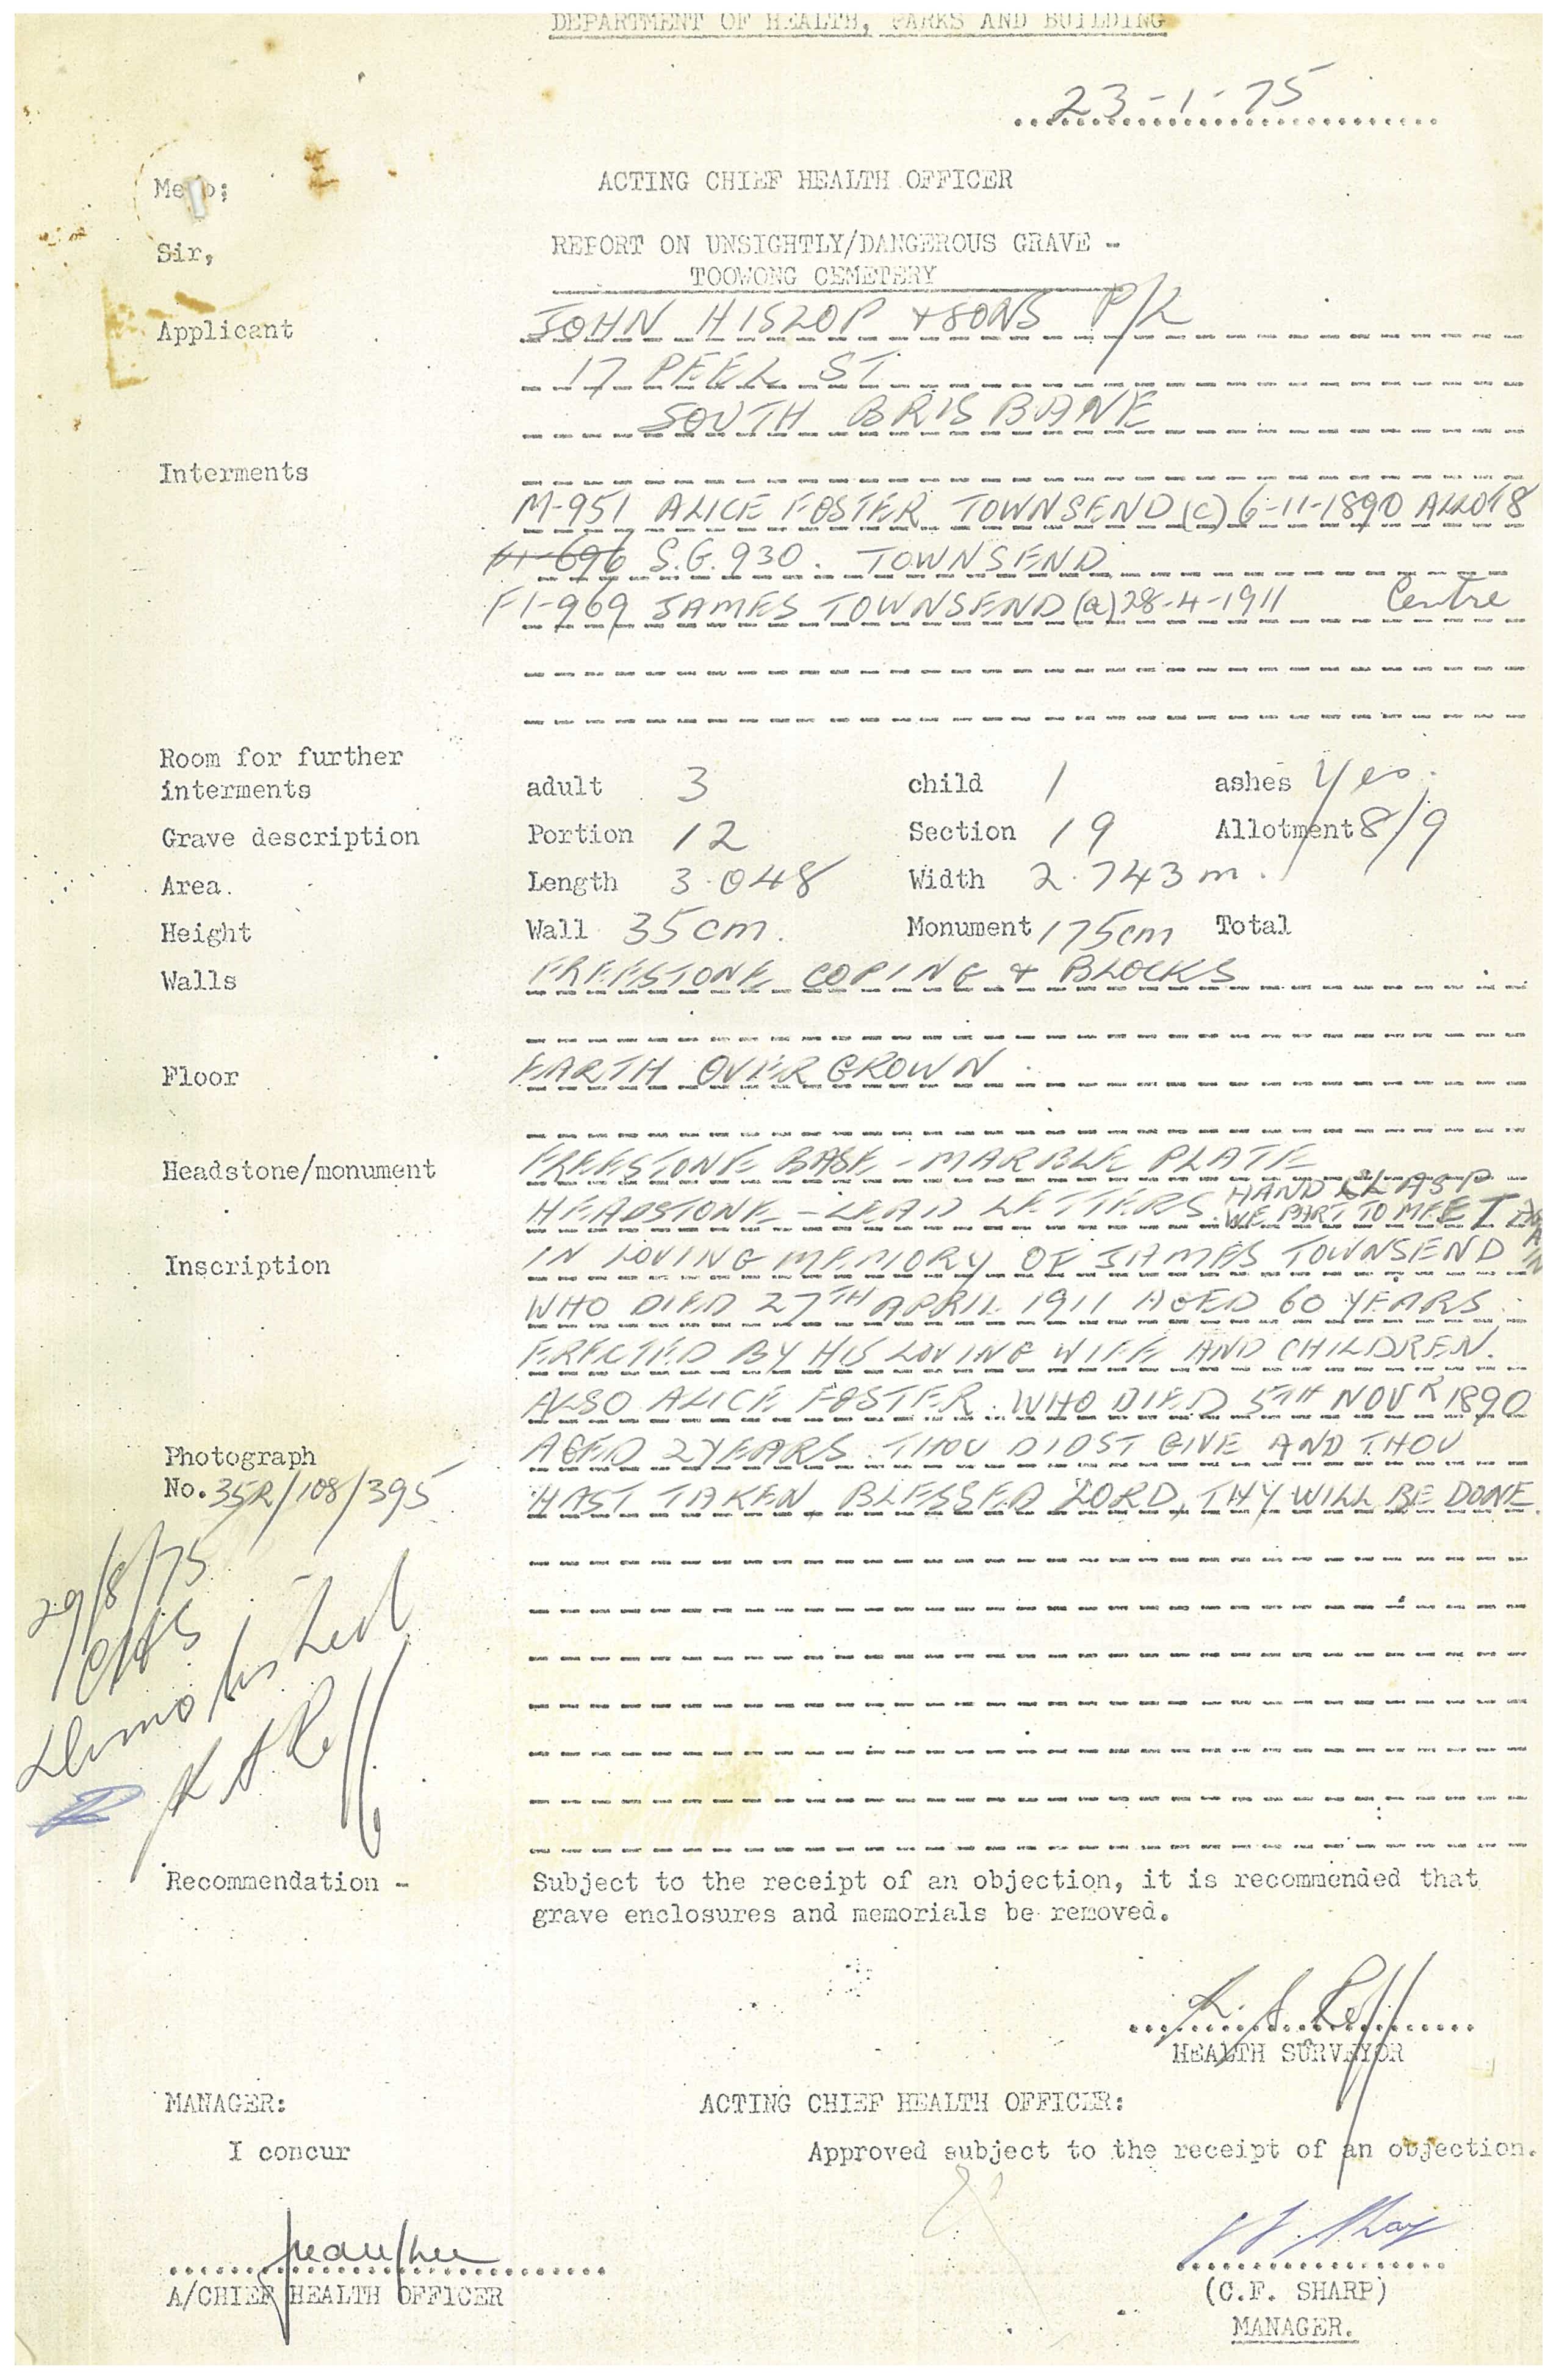 DEPARTMENT OF HEALTH, PARKS AND BUILDING
23-1-75
Memo:
ACTING CHIEF HEALTH OFFICER
Sir,
REPORT ON UNSIGHTLY/DANGEROUS GRAVE -
TOOWONG CEMETERY
Applicant
JOHN HISLOP & SONS P/L
17 PEEL ST.
SOUTH BRISBANE
Interments
M-951 ALICE FOSTER TOWNSEND (c) 6-11-1890 ALLOT 8
F1-696 S.G. 930. TOWNSEND
F1-969 JAMES TOWNSEND (a) 28-4-1911 Centre
Room for further
interments adult 3 child 1 ashes Yes.
Grave description Portion 12 Section 19 Allotment 8/9
Area. Length 3.048 Width 2.743 m.
Height Wall 35cm. Monument 175cm Total
Walls FREESTONE COPING & BLOCKS
Floor EARTH OVERGROWN.
Headstone/monument FREESTONE BASE - MARBLE PLATE
HEADSTONE - LEAD LETTERS. HAND CLASP
WE PART TO MEET AGAIN
Inscription IN LOVING MEMORY OF JAMES TOWNSEND
WHO DIED 27TH APRIL 1911 AGED 60 YEARS.
ERECTED BY HIS LOVING WIFE AND CHILDREN.
ALSO ALICE FOSTER. WHO DIED 5TH NOVR 1890
AGED 2 YEARS. THOU DIDST GIVE AND THOU
HAST TAKEN, BLESSED LORD, THY WILL BE DONE.
Photograph
No. 35R/108/395
29/8/75
CHS
Demolished
K A Reff
Recommendation - Subject to the receipt of an objection, it is recommended that
grave enclosures and memorials be removed.
K. A. Reff
HEALTH SURVEYOR
MANAGER: ACTING CHIEF HEALTH OFFICER:
I concur Approved subject to the receipt of an objection.
A/CHIEF HEALTH OFFICER
(C.F. SHARP)
MANAGER.